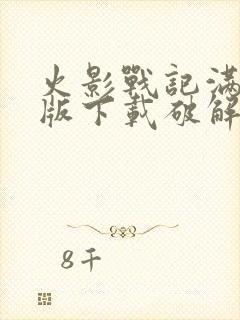 火影戰記滿
版下載破解
8千